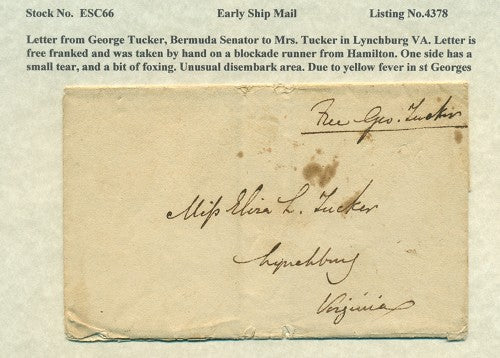 Stock No. ESC66 Early Ship Mail Listing No.4378
Letter from George Tucker, Bermuda Senator to Mrs. Tucker in Lynchburg VA. Letter is
free franked and was taken by hand on a blockade runner from Hamilton. One side has a
small tear, and a bit of foxing. Unusual disembark area. Due to yellow fever in st Georges
Free Geo. Tucker
Miſs Eliza L. Tucker
Lynchburg
Virginia